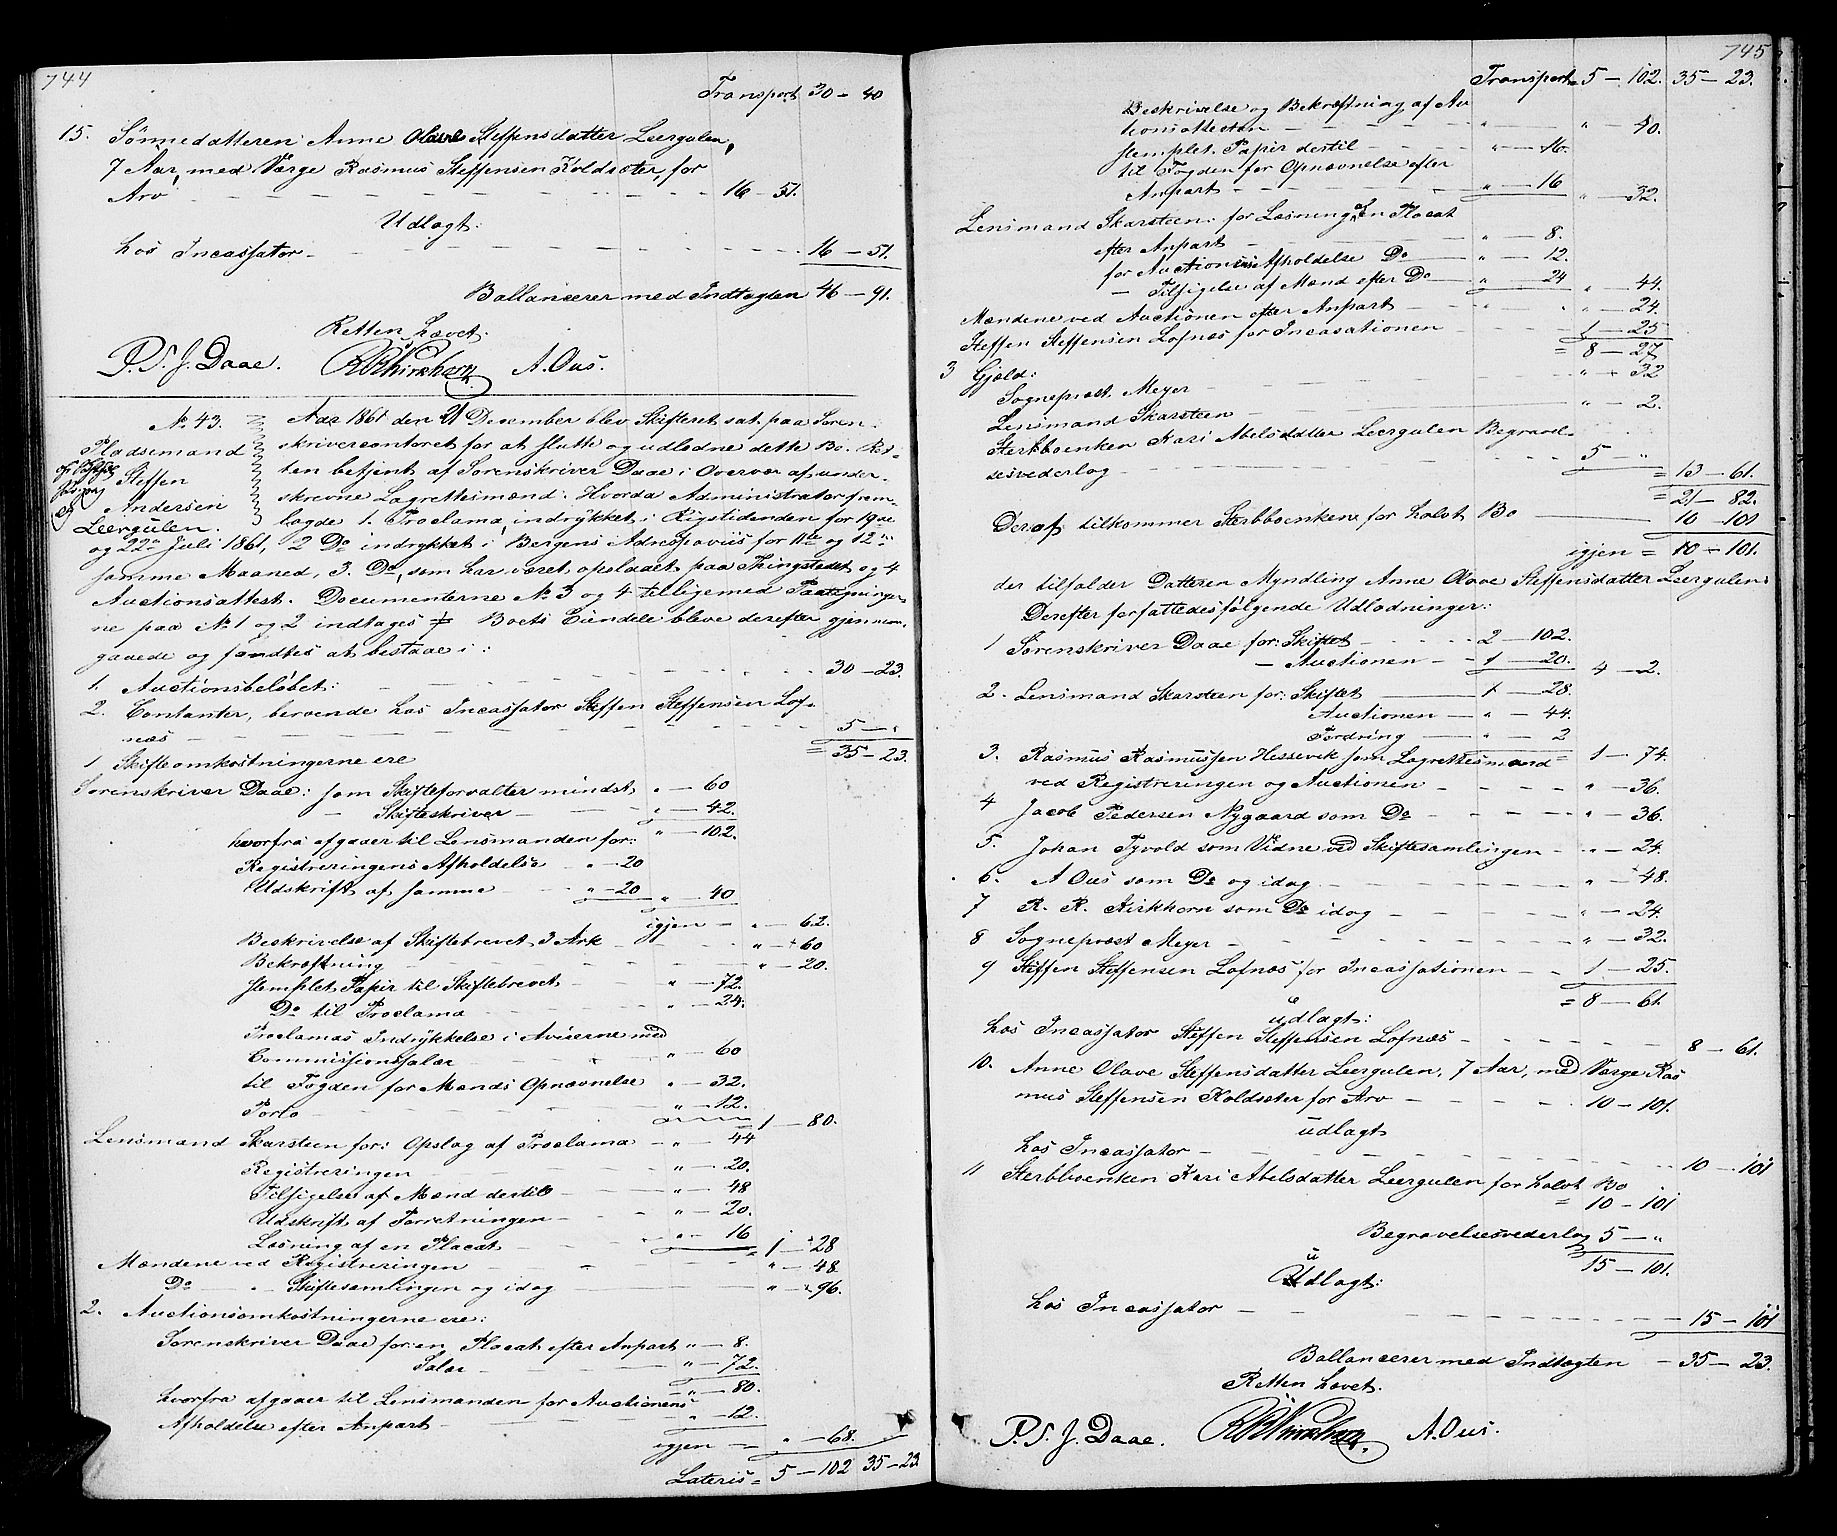 744
Transport 30 – 40
15. Sönnedatteren Anne Olave Steffensdatter Leergulen,
7 Aar, med Værge Rasmus Steffensen Koldsæter, for
Arv 16 – 51.
Udlagt:
hos Incassator 16 – 51.
Ballancerer med Indtægten 46 – 91.
Retten hævet.
P. S. J. Daae. A. Ous.
No 43.
Pladsemand
Steffen
Andersen
Leergulen.
Aar 1861 den 21 December blev Skifteret sat paa Soren-
skrivercontoret for at slutte og udlodne dette Bo. Ret-
ten betjent af Sorenskriver Daae i Overvær af under-
skrevne Lagrettesmænd. Hvorda Administrator frem-
lagde 1. Proclama indrykket i Rigstidenden for 19de
og 22de Juli 1861, 2 Do indrykket i Bergens Adresseaviis for 11te og 12te
samme Maaned, 3. Do, som har været opslaaet paa Thingstedet og 4
Auctionsattest. Documenterne No 3 og 4 tilligemed Paategninger-
ne paa No 1 og 2 indtages Boets Eiendele bleve derefter gjennem-
gaaede og fandtes at bestaae i:
1. Auctionsbeløbet: 30 – 23.
2. Contanter, beroende hos Incassator Steffen Steffensen Lof-
næs 5 – "
= 35 – 23.
1 Skifteomkostningerne ere
Sorenskriver Daae: som Skifteforvalter mindst " – 60
– Skifteskriver – " – 42.
" – 102.
hvorfra afgaaer til Lensmanden for:
Registreringens Afholdelse " – 20
Udskrift af samme " – 20 " – 40
igjen – " – 62.
Beskrivelse af Skiftebrevet 3 Ark " – 60
Bekræftning " – 20.
stemplet Papir til Skiftebrevet " – 72.
Do til Proclama " – 24.
Proclamas Indrykkelse i Aviserne med
Commissionssalær " – 60
til Fogden for Mænds Opnævnelse " – 32.
Porto " – 12.
1 – 80.
Lensmand Skarsteen for: Opslag af Proclama " – 44
Registreringen " – 20.
Tilsigelse af Mænd dertil " – 48
Udskrift af Forretningen " – 20.
Læsning af en Placat " – 16
= 1 – 28
Mændene ved Registreringen " – 48
Do " Skiftesamlingen og idag " – 96.
2. Auctionsomkostningerne ere:
Sorenskriver Daae for: en Placat efter Anpart " – 8.
Salær " – 72.
" – 80.
hvorfra afgaaer til Lensmanden for Auctionens
Afholdelse efter Anpart " – 12.
igjen – " – 68.
Lateris = 5 – 102 35 – 23
745
Transport 5 – 102. 35 – 23.
Beskrivelse og Bekræftning af Au
tionsattesten " – 40.
stemplet Papir dertil " – 16.
til Fogden for Opnævnelse efter
Anpart " – 16
" – 32.
Lensmand Skarsteen: for Læsning af en Placat
efter Anpart " – 8.
for Auctionens Afholdelse Do " – 12.
– Tilsigelse af Mænd efter Do " – 24
" – 44.
Mændene ved Auctionen efter Anpart " – 24.
Steffen Steffensen Lofnæs for Incasationen 1 – 25
= 8 – 27
3 Gjæld:
Sogneprest Meyer " – 32
Lensmand Skarsteen " – 2.
Sterbboenken Kari Abelsdatter Leergulen Begravel-
sesvederlag 5 – "
= 13 – 61.
= 21 – 82.
Deraf tilkommer Sterbboenken for halvt Bo 10 – 101
igjen = 10 – 101.
der tilfalder Datteren Myndling Anne Olave Steffensdatter Leergulen.
Derefter forfattedes følgende Udlodninger:
1 Sorenskriver Daae for: Skiftet 2 – 102.
– Auctionen 1 – 20.
4 – 2.
2. Lensmand Skarsteen for: Skiftet 1 – 28.
Auctionen " – 44.
Fordring " – 2
= 1 – 74.
3. Rasmus Rasmussen Hessevik som Lagrettesmand
ved Registreringen og Auctionen " – 36.
4 Jacob Pedersen Nygaard som Do " – 36.
5. Johan Tyvold som Vidne ved Skiftesamlingen " – 24.
6. A Ous som Do og idag " – 48.
7 R. R. Kirkhorn som Do idag " – 24.
8 Sogneprest Meyer " – 32.
9 Steffen Steffensen Lofnæs for Incassationen 1 – 25.
= 8 – 61.
udlagt:
hos Incassator Steffen Steffensen Lofnæs 8 – 61.
10. Anne Olave Steffensdatter Leergulen, 7 Aar, med Værge Ras
mus Steffensen Koldsæter for Arv 10 – 101.
udlagt
hos Incassator 10 – 101
11 Sterbboenken Kari Abelsdatter Leergulen for halvt Bo
= 10 – 101
Begravelsesvederlag 5 – "
15 – 101.
Udlagt:
hos Incassator 15 – 101
Ballancerer med Indtægten – 35 – 23.
Retten hævet.
P. S. J. Daae. A. Ous.